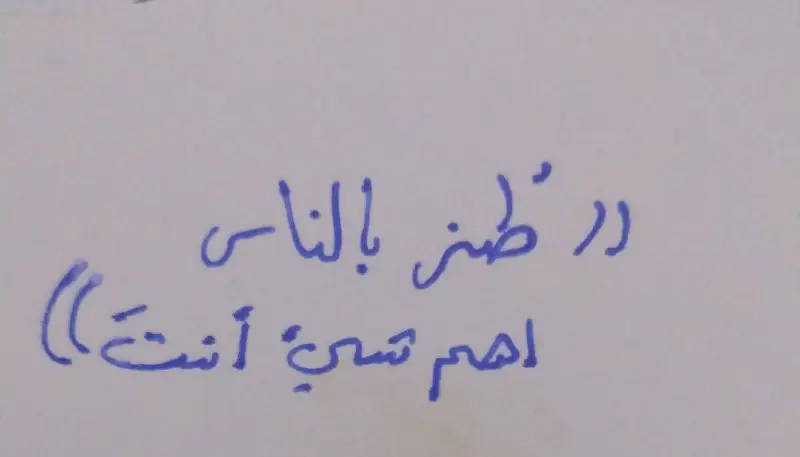 (( طُز بالناس
اهم شيءٌ أنتَ ))